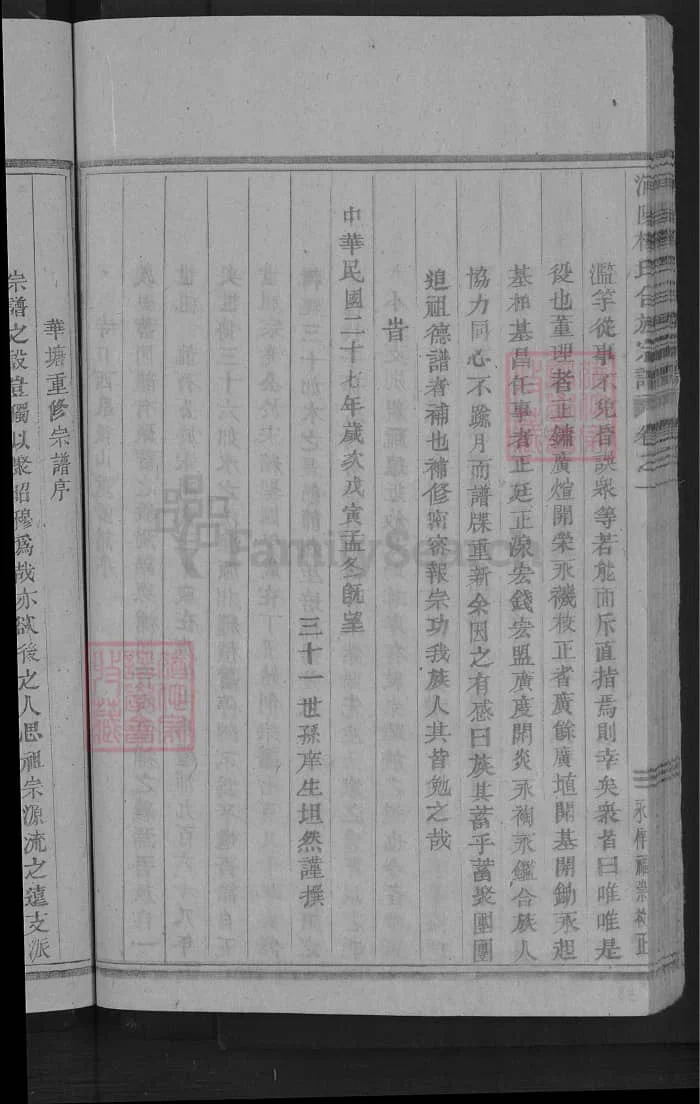 濫竽從事不免皆誤衆等若能面斥直指焉則幸矣衆者曰唯唯是
役也董理者正鏞廣煊開榮永禨校正者廣餘廣埴開基開鋤永起
基相基昌任事者正廷正源宏錢宏盟廣度開炎永裪永鑑合族人
協力同心不踰月而譜牒重新余因之有感曰族其蓄乎蓄聚團團
追祖德譜者補也補修甯密報宗功我族人其皆勉之哉
旹
中華民國二十七年歲次戊寅孟冬旣望
三十一世孫庠生坦然謹撰
華塘重修宗譜序
宗譜之設豈獨以聚昭穆爲哉亦欲後之人思祖宗源流之遠支派
FamilySearch